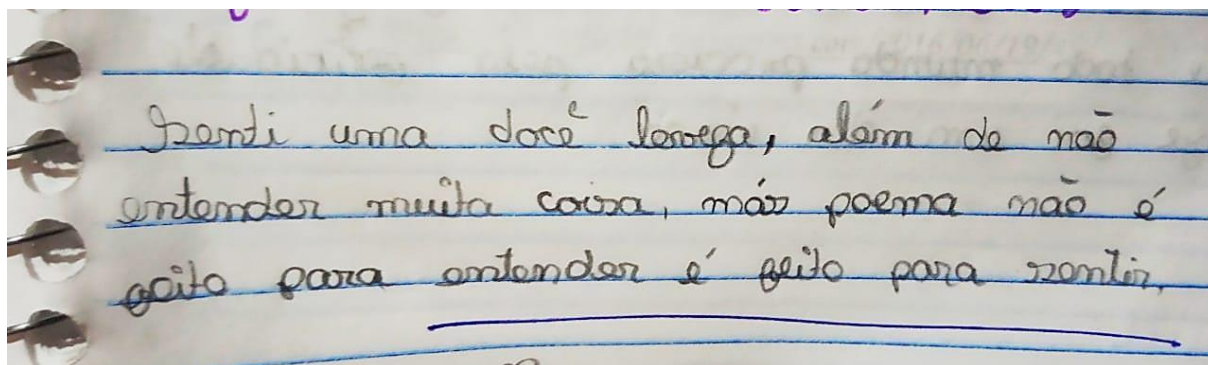 Senti uma docê levega, além de não
entender muita coisa, más poema não é
feito para entender é feito para sentir.